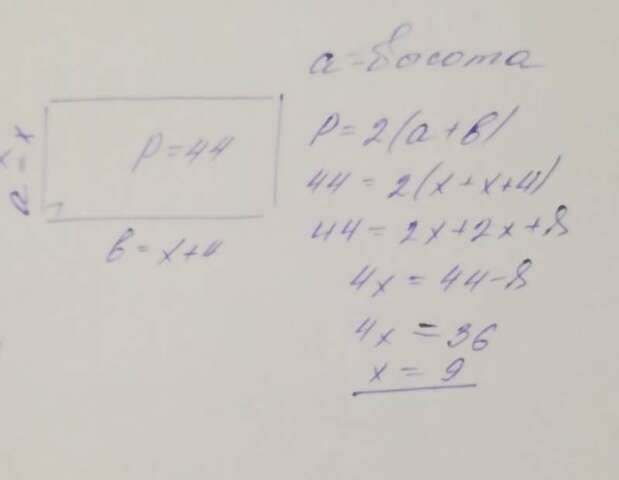 a = высота
a = x
P = 44
в = x+4
P = 2(a+в)
44 = 2(x+x+4)
44 = 2x+2x+8
4x = 44-8
4x = 36
x = 9